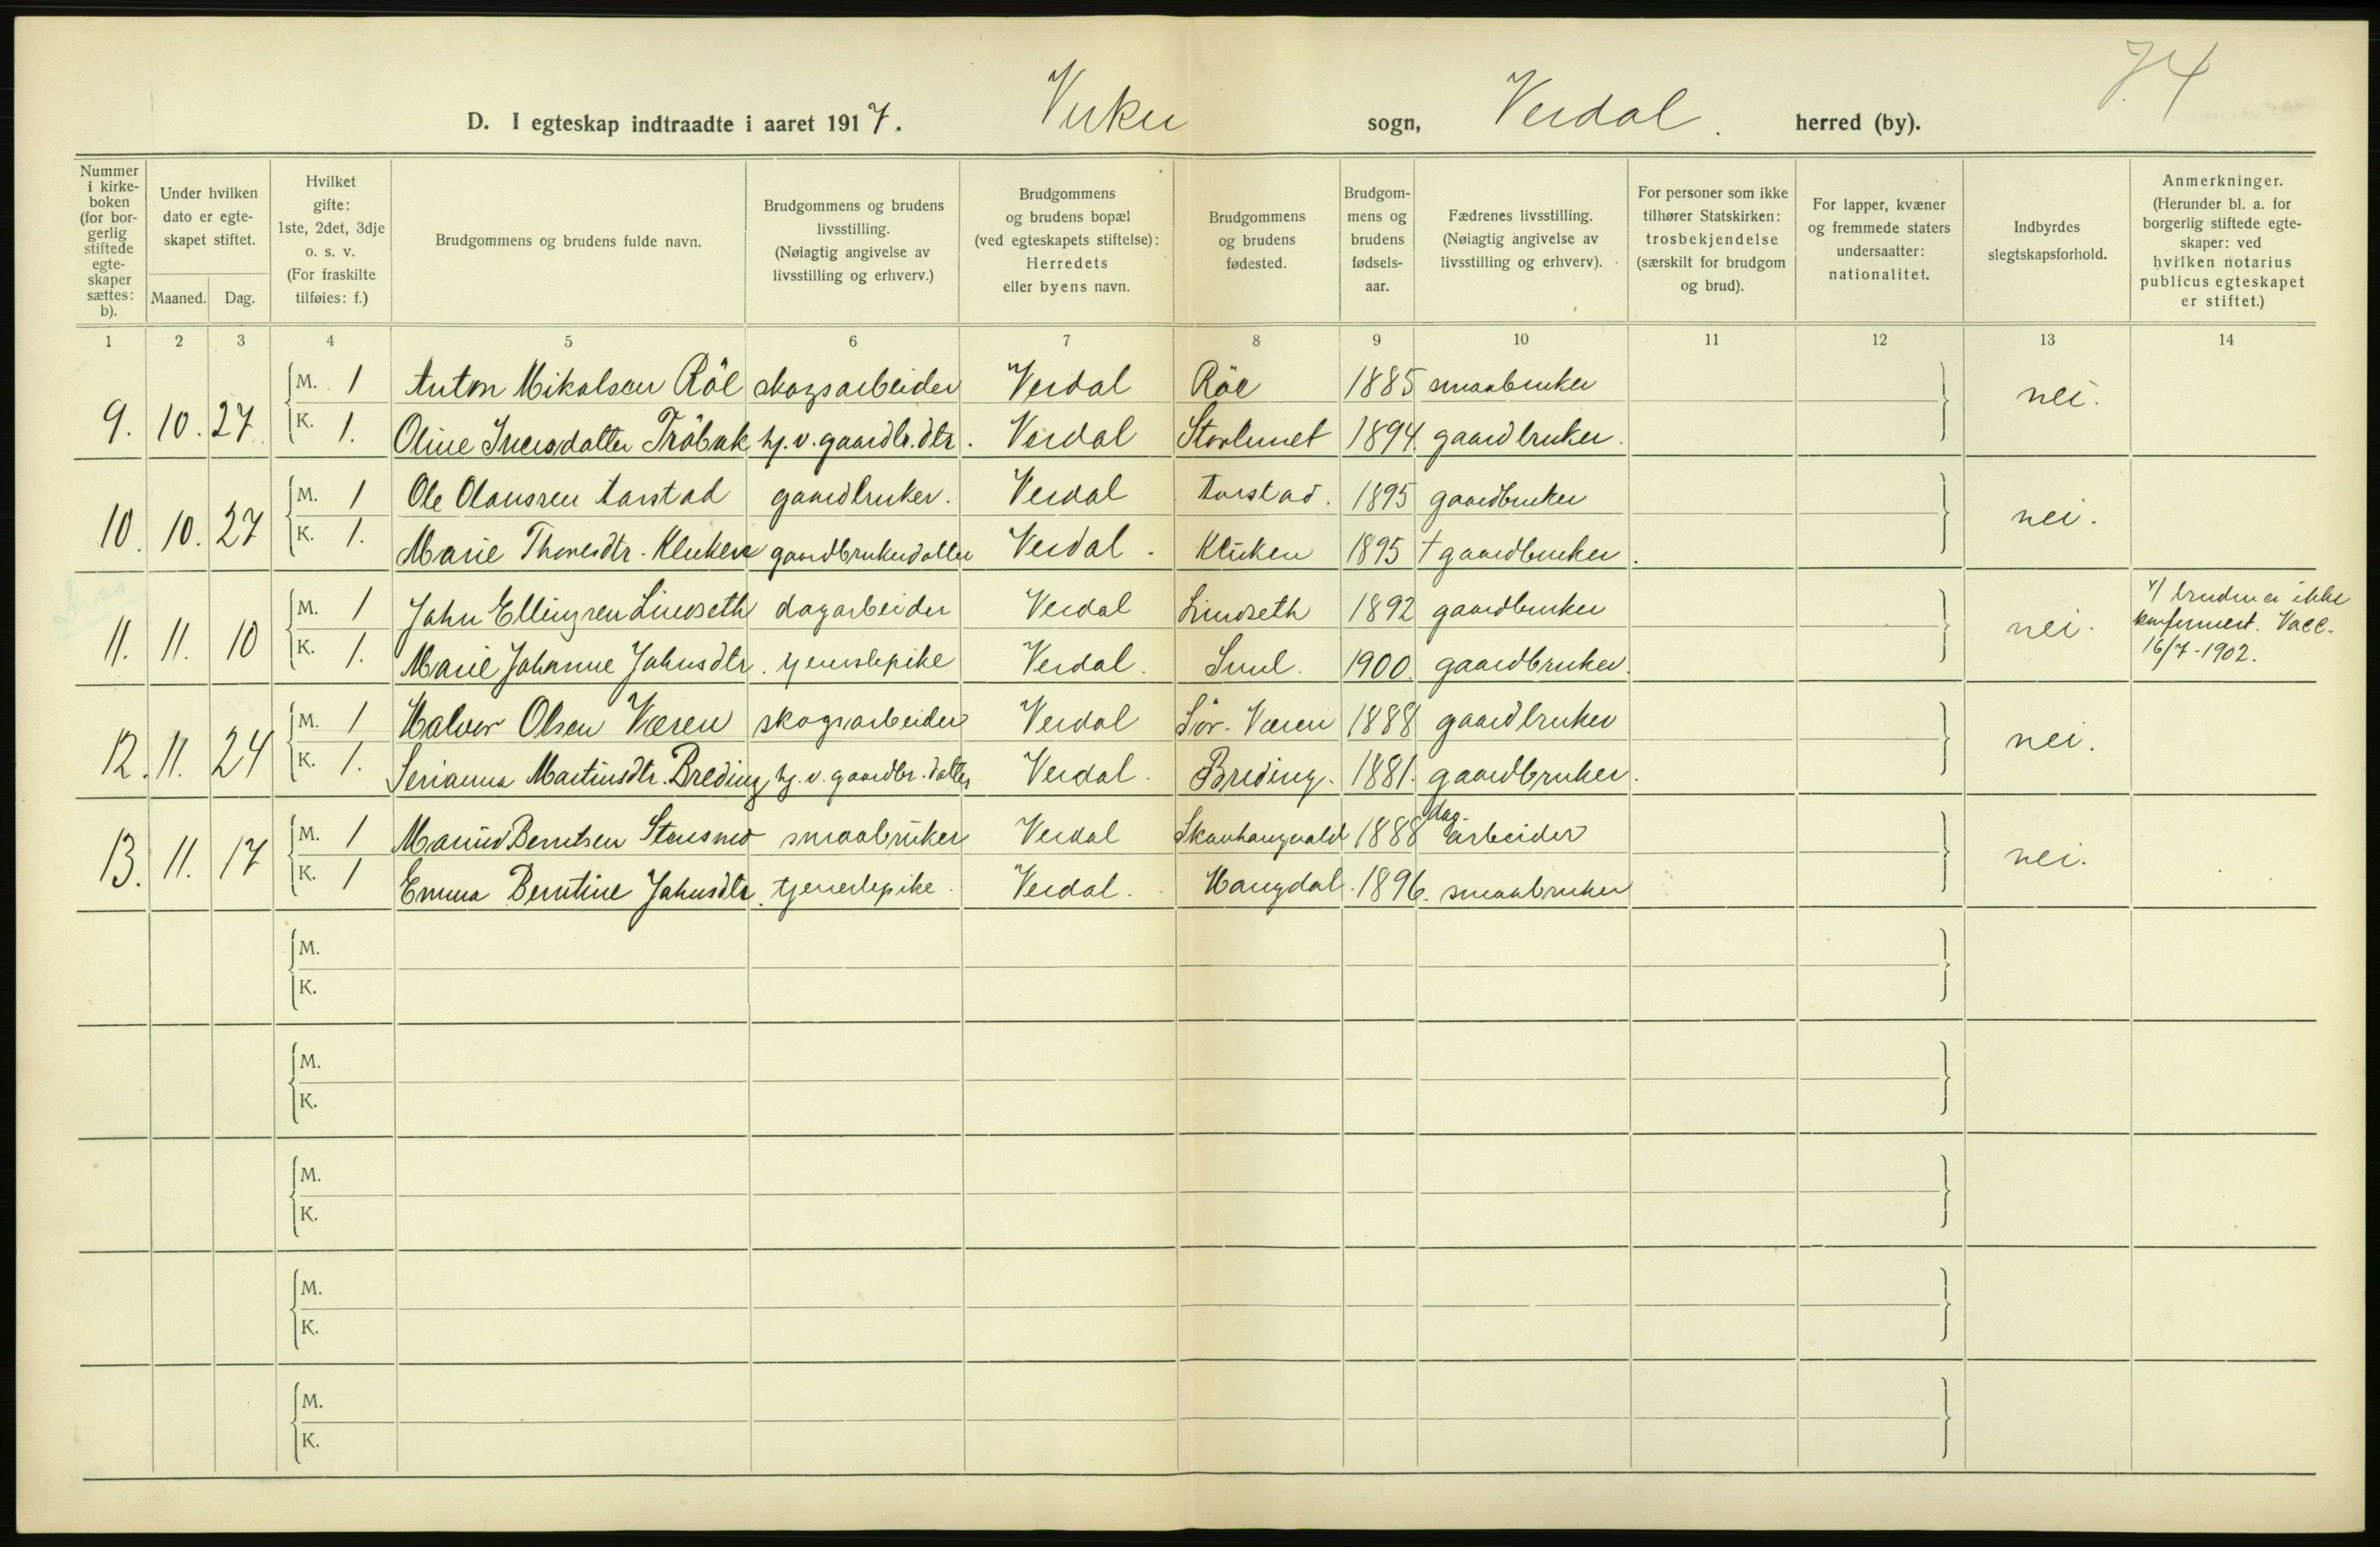 74
D. I egteskap indtraadte i aaret 1917. Vuku sogn, Verdal. herred (by).
Nummer i kirke-boken (for bor-gerlig stiftede egte-skaper sættes: b).
Under hvilken dato er egte-skapet stiftet.
Maaned. Dag.
Hvilket gifte: 1ste, 2det, 3dje o. s. v. (For fraskilte tilføies: f.)
Brudgommens og brudens fulde navn.
Brudgommens og brudens livsstilling. (Nøiagtig angivelse av livsstilling og erhverv.)
Brudgommens og brudens bopæl (ved egteskapets stiftelse): Herredets eller byens navn.
Brudgommens og brudens fødested.
Brudgom-mens og brudens fødsels-aar.
Fædrenes livsstilling. (Nøiagtig angivelse av livsstilling og erhverv).
For personer som ikke tilhører Statskirken: trosbekjendelse (særskilt for brudgom og brud).
For lapper, kvæner og fremmede staters undersaatter: nationalitet.
Indbyrdes slegtskapsforhold.
Anmerkninger. (Herunder bl. a. for borgerlig stiftede egte-skaper: ved hvilken notarius publicus egteskapet er stiftet.)
1 2 3 4 5 6 7 8 9 10 11 12 13 14
M. 1 Anton Mikalsen Röe skogsarbeider Verdal Röe 1885 smaabruker
9. 10. 27. nei.
K. 1. Oline Iversdatter Tröbak hj. v. gaardbr. dtr. Verdal Storlunet 1894. gaardbruker.
M. 1 Ole Olaussen Aarstad gaardbruker. Verdal Aarstad. 1895 gaardbruker
10. 10. 27 nei.
K. 1. Marie Thoresdtr. Kluken gaardbrukerdatter Verdal. Kluken 1895 † gaardbruker.
M. 1 John Ellingsen Lindseth dagarbeider Verdal Lindseth 1892 gaardbruker
11. 11. 10 nei.
K. 1. Marie Johanne Johnsdtr. tjenestepike Verdal. Suul. 1900. gaardbruker.
*/ bruden er ikke
konfirmert. Vacc.
16/7-1902.
M. 1 Halvor Olsen Væren skogsarbeider Verdal Sör-Væren 1888 gaardbruker
12. 11. 24 nei.
K. 1. Serianna Martinsdtr. Breding hj. v. gaardbr. datter Verdal. Breding. 1881. gaardbruker.
M. 1 Marius Berntsen smaabruker Verdal 1888 dag-arbeider
13. 11. 17 nei.
K. 1 Emma Berntine Johnsdtr. tjenestepike. Verdal. Haugdal. 1896. smaabruker
M.
K.
M.
K.
M.
K.
M.
K.
M.
K.